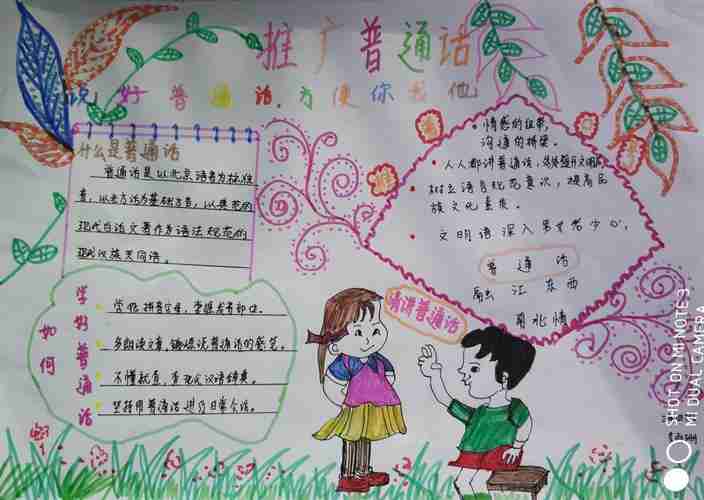 推广普通话
说好普通话,方便你我他
什么是普通话
普通话是以北京语音为标准
音,以北方话为基础方言,以典范的
现代白话文著作为语法规范的
现代汉族共同语。
如何
学好普通话
学说拼音字母,掌握发音部位。
多朗读文章,锻炼说普通话的感觉。
不懂就查,查现代汉语辞典。
坚持用普通话进行日常会话。
情感的纽带,
沟通的桥梁。
人人都讲普通话,
树立语言规范意识,提高民
族文化素质。
文明语深入男女老少心,
普通话
江东西
南北情
请讲普通话
SHOT ON MI NOTE 3
MI DUAL CAMERA